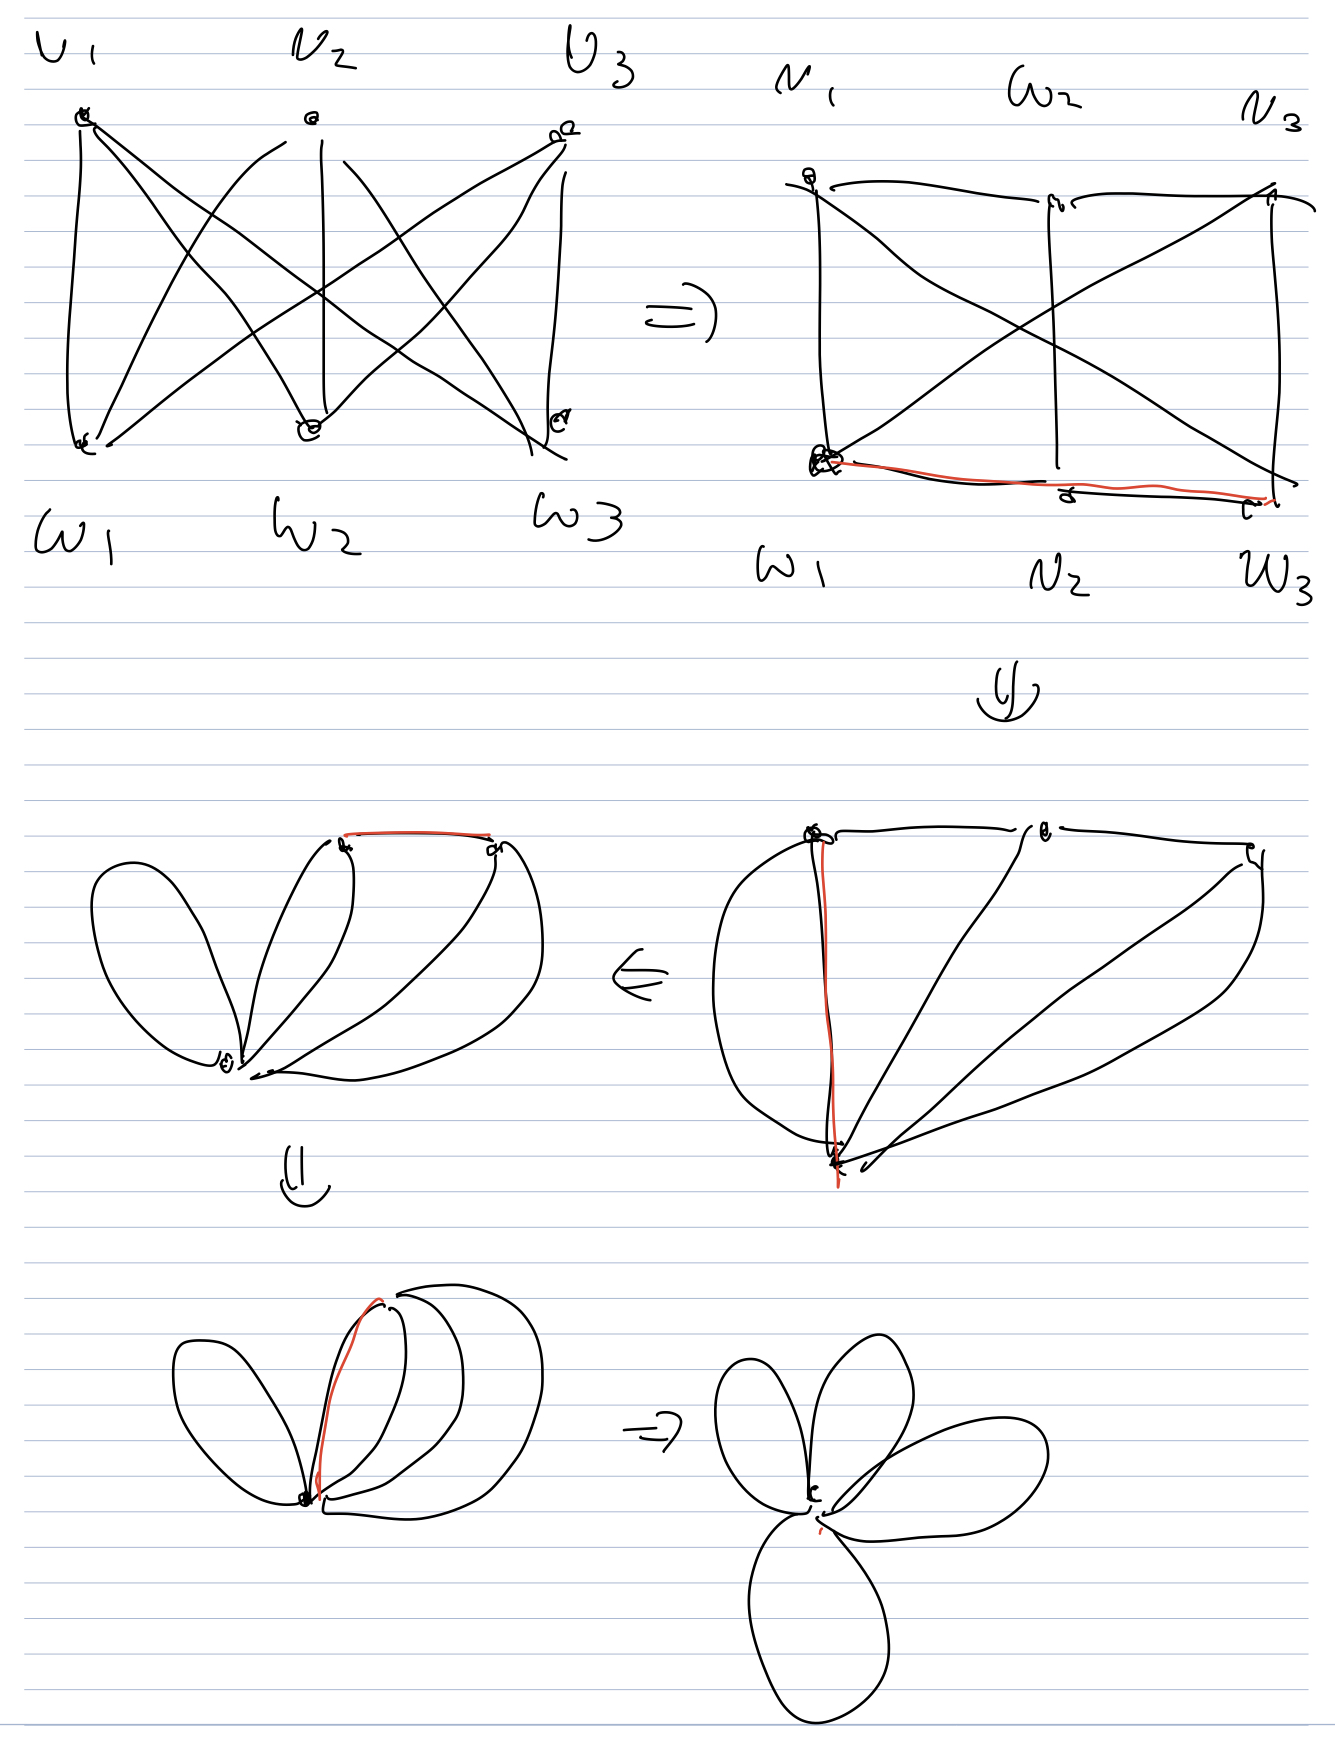 v1 v2 v3
w1 w2 w3
⇒
v1 w2 v3
w1 v2 w3
⇓
⇐
⇓
⇒